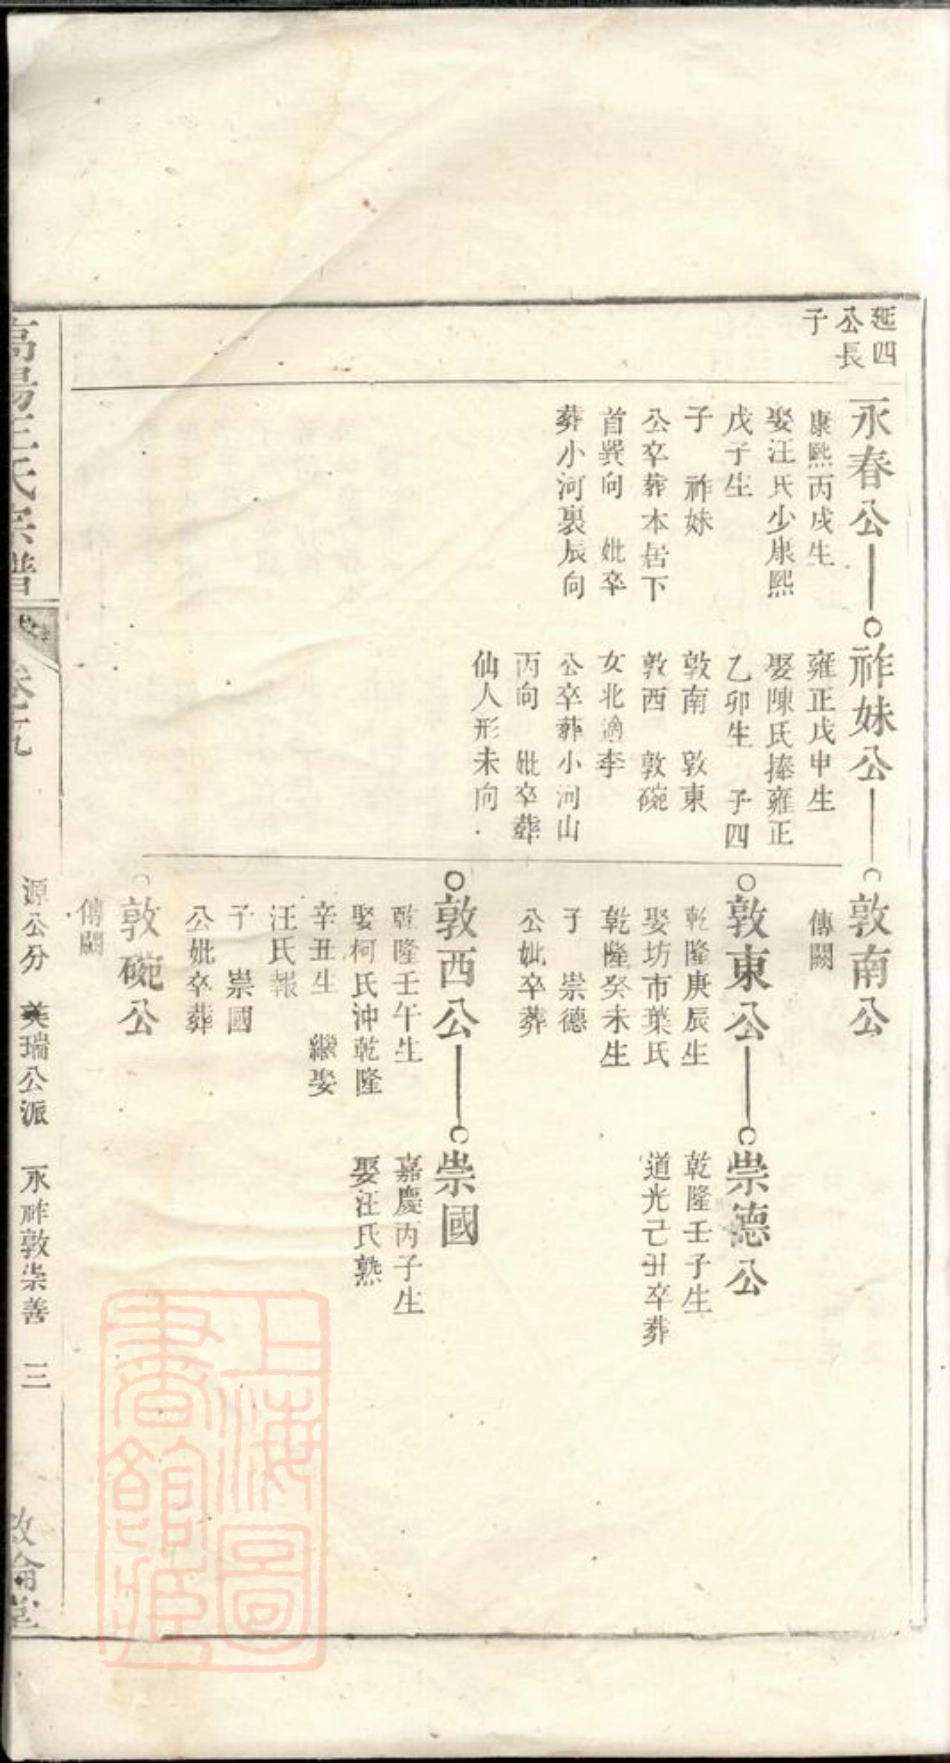 延四
公長
子
永春公
康熙丙戌生
娶汪氏少康熙
戊子生
子 祚妹
公卒葬本居下
首巽向 妣卒
葬小河裏辰向
祚妹公
雍正戊申生
娶陳氏捧雍正
乙卯生 子四
敦南 敦東
敦西 敦碗
女北 李
公卒葬小河山
丙向 妣卒葬
仙人形未向
敦南公
傳闕
敦東公
乾隆庚辰生
娶坊市葉氏
乾隆癸未生
子 崇德
公妣卒葬
崇德公
乾隆壬子生
道光己丑卒葬
敦西公
乾隆壬午生
娶柯氏沖乾隆
辛丑生 繼娶
汪氏報
子 崇國
公妣卒葬
崇國
嘉慶丙子生
娶汪氏熟
敦碗公
傳闕
高陽 氏宗譜
卷 九
源公分 美瑞公派 永祚敦崇善 三
敘倫堂
上海圖
書館藏